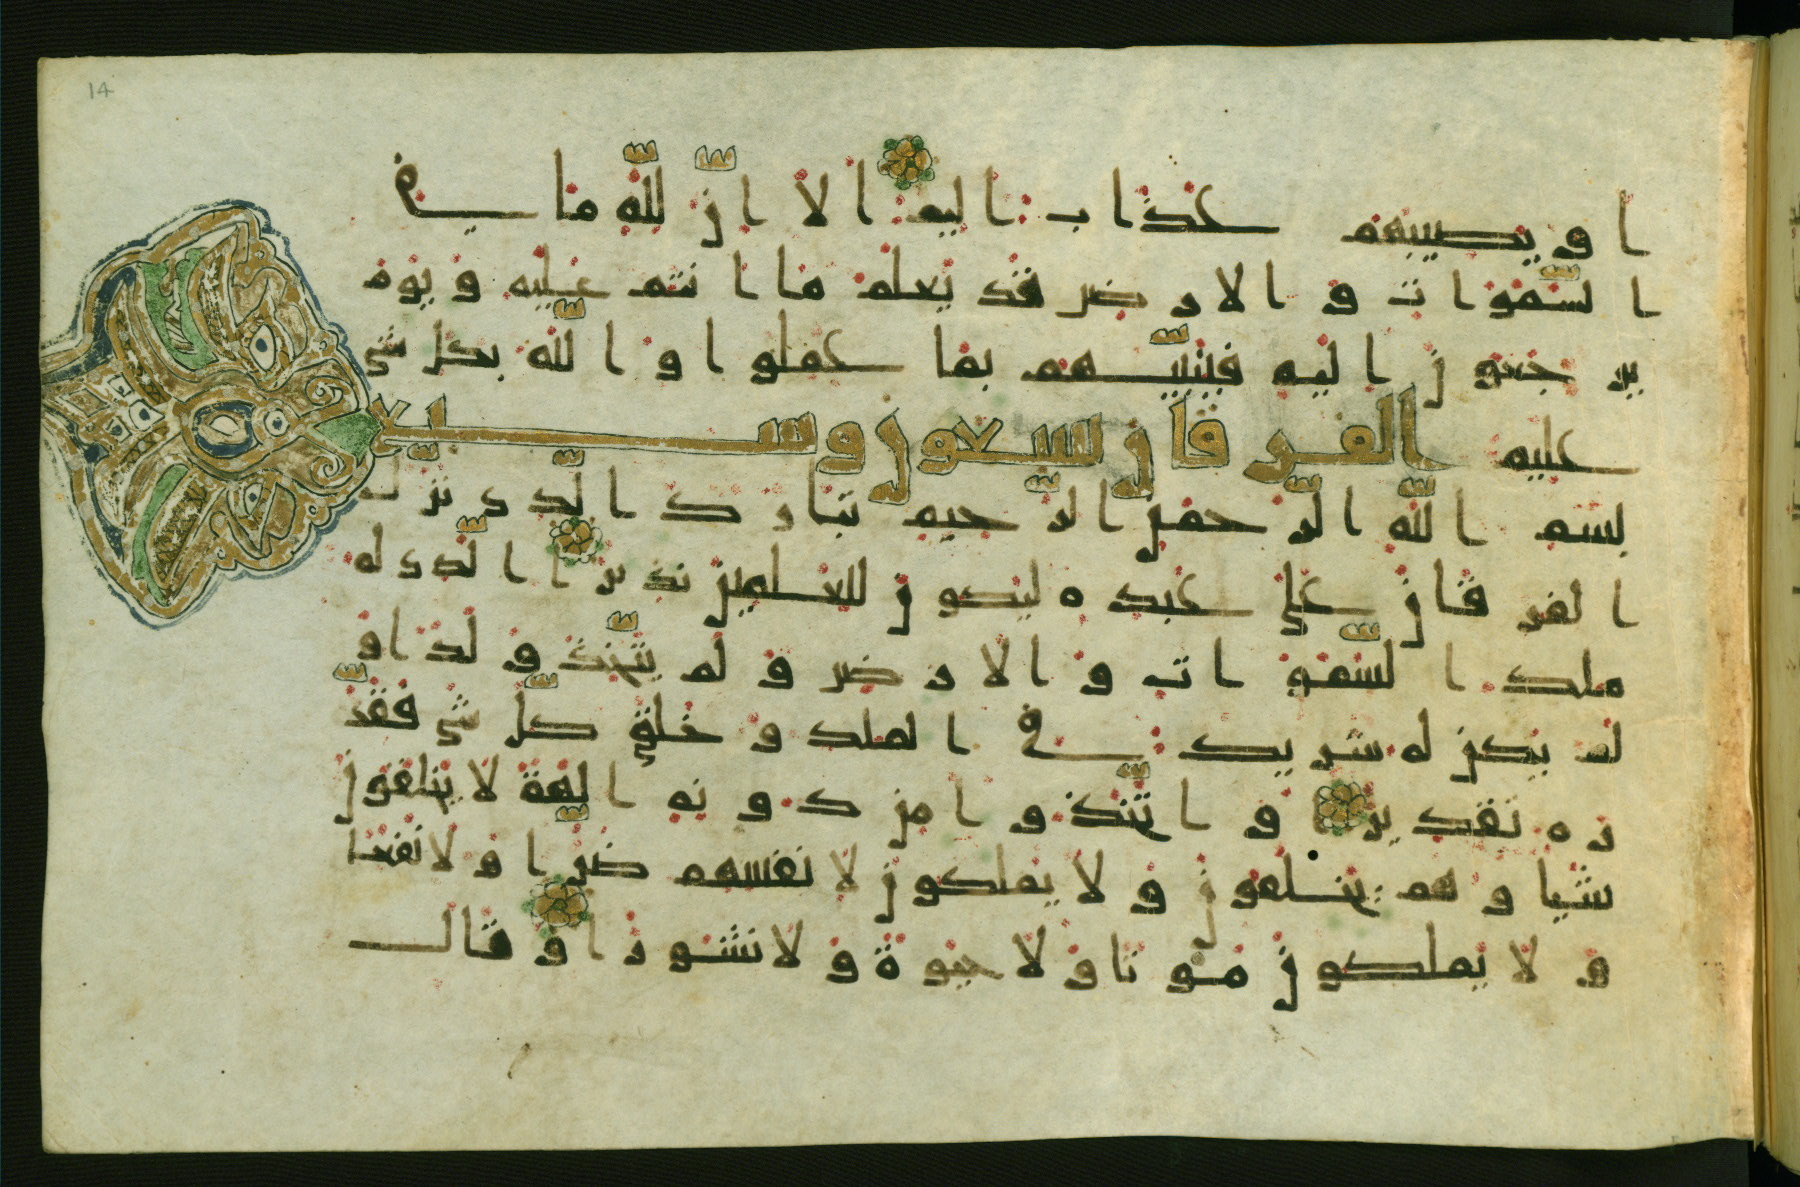 14
ا و يصيبهم عذاب اليم الا ان لله ما في
السموات والارض قد يعلم ما انتم عليه ويوم
يرجعون اليه فينبئهم بما عملوا والله بكل شي
عليم الفرقان سبعون وسبع
بسم الله الرحمن الرحيم تبارك الذي نزل
الفرقان على عبده ليكون للعلمين نذيرا الذي له
ملك السموات والارض ولم يتخذ ولدا و
لم يكن له شريك في الملك وخلق كل شي فقد
ره تقديرا واتخذوا من دونه الهة لا يخلقون
شيا وهم يخلقون ولا يملكون لانفسهم ضرا ولا نفعا
ولا يملكون موتا ولا حيوة ولا نشورا وقال